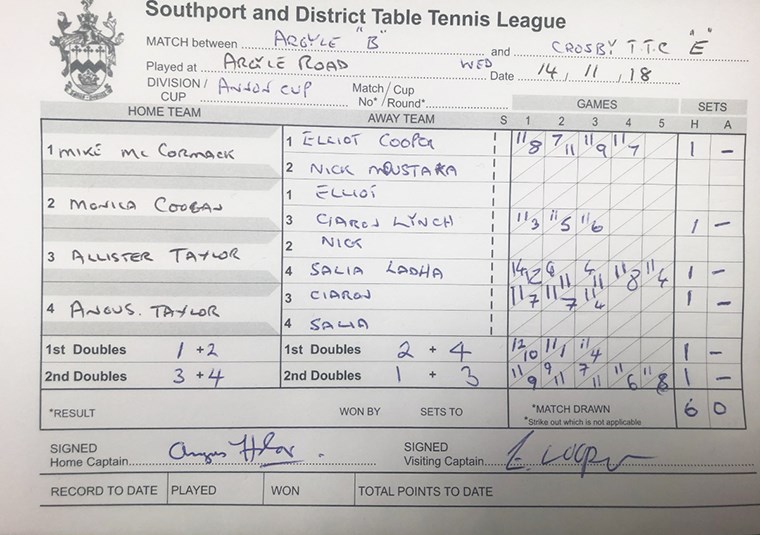 Southport and District Table Tennis League
MATCH between ARGYLE "B" and CROSBY T.T.C "E"
Played at ARGYLE ROAD WED Date 14/11/18
DIVISION / CUP ANSON CUP Match/Cup No*/Round*
HOME TEAM AWAY TEAM S GAMES 1 2 3 4 5 SETS H A
1 MIKE MC CORMACK
1 ELLIOT COOPER 11/8 7/11 11/9 11/7 1 –
2 NICK MOUSTAKA
2 MONICA COOGAN
1 ELLIOT
3 CIARON LYNCH 11/3 11/5 11/6 1 –
3 ALLISTER TAYLOR
2 NICK
4 SALIA LADHA 14/12 6/11 4/11 11/8 11/4 1 –
4 ANGUS. TAYLOR
3 CIARON 11/7 11/7 11/4 1 –
4 SALIA
1st Doubles 1 + 2 1st Doubles 2 + 4 12/10 11/1 11/4 1 –
2nd Doubles 3 + 4 2nd Doubles 1 + 3 11/9 9/11 7/11 11/6 11/8 1 –
*RESULT WON BY SETS TO *MATCH DRAWN 6 0
*Strike out which is not applicable
SIGNED Home Captain
SIGNED Visiting Captain E. Cooper
RECORD TO DATE PLAYED WON TOTAL POINTS TO DATE